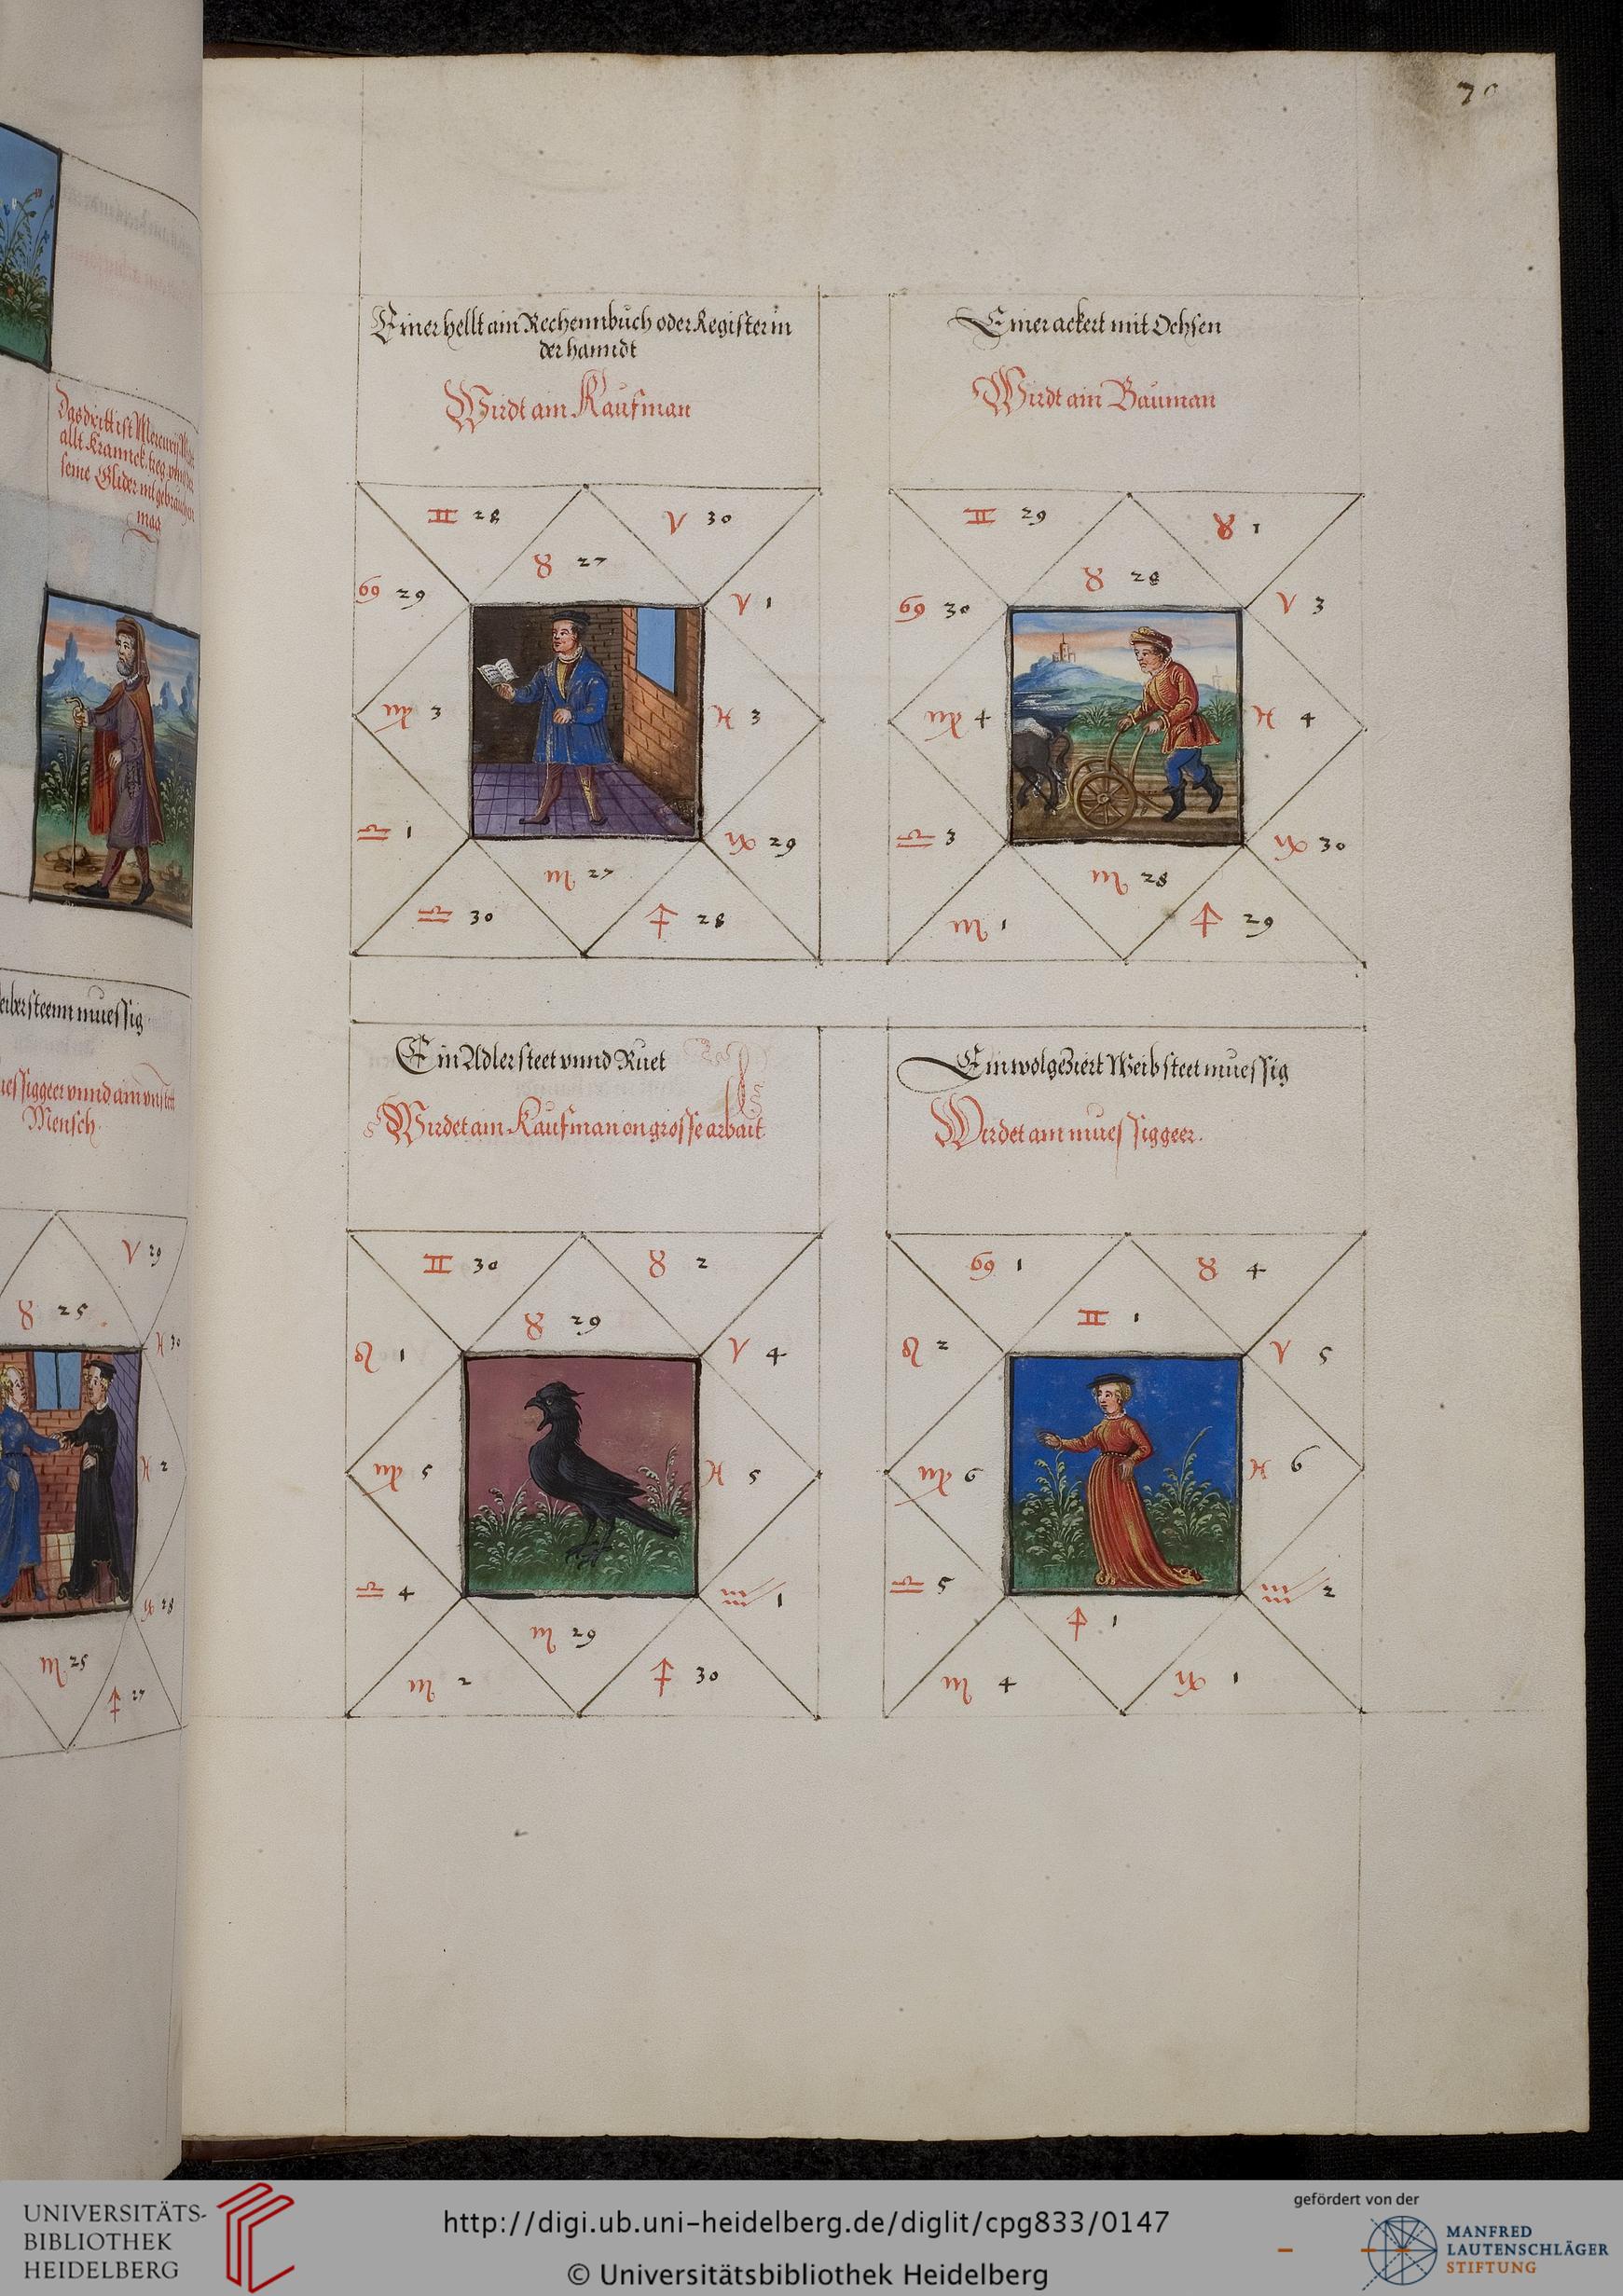 Das dritt ist Mercurij
allt Krannck treg
seine Glider nit gebrauchen
mag
steenn muessig
Mensch
♈ 29
♉ 25
♓ 30
♓ 2
♑ 28
♏ 25
♐ 27
Einer hellt ain Rechennbuch oder Register in
der hanndt
Wirdt ain Kaufman
♊ 28
♈ 30
♉ 27
♋ 29
♈ 1
♍ 3
♓ 3
♎ 1
♑ 29
♏ 27
♎ 30
♐ 28
Einer ackert mit Ochsen
Wirdt ain Bauman
♊ 29
♉ 1
♉ 28
♋ 30
♈ 3
♍ 4
♓ 4
♎ 3
♑ 30
♏ 28
♏ 1
♐ 29
Ein Adler steet vnnd Ruet
Wirdet ain Kaufman on grosse arbait
♊ 30
♉ 2
♉ 29
♌ 1
♈ 4
♍ 5
♓ 5
♎ 4
♒ 1
♏ 29
♏ 2
♐ 30
Ein wolgeziert Weib steet muessig
Wirdet ain muessiggeer.
♋ 1
♉ 4
♊ 1
♌ 2
♈ 5
♍ 6
♓ 6
♎ 5
♒ 2
♐ 1
♏ 4
♑ 1
UNIVERSITÄTS-
BIBLIOTHEK
HEIDELBERG
http://digi.ub.uni-heidelberg.de/diglit/cpg833/0147
© Universitätsbibliothek Heidelberg
gefördert von der
MANFRED
LAUTENSCHLÄGER
STIFTUNG